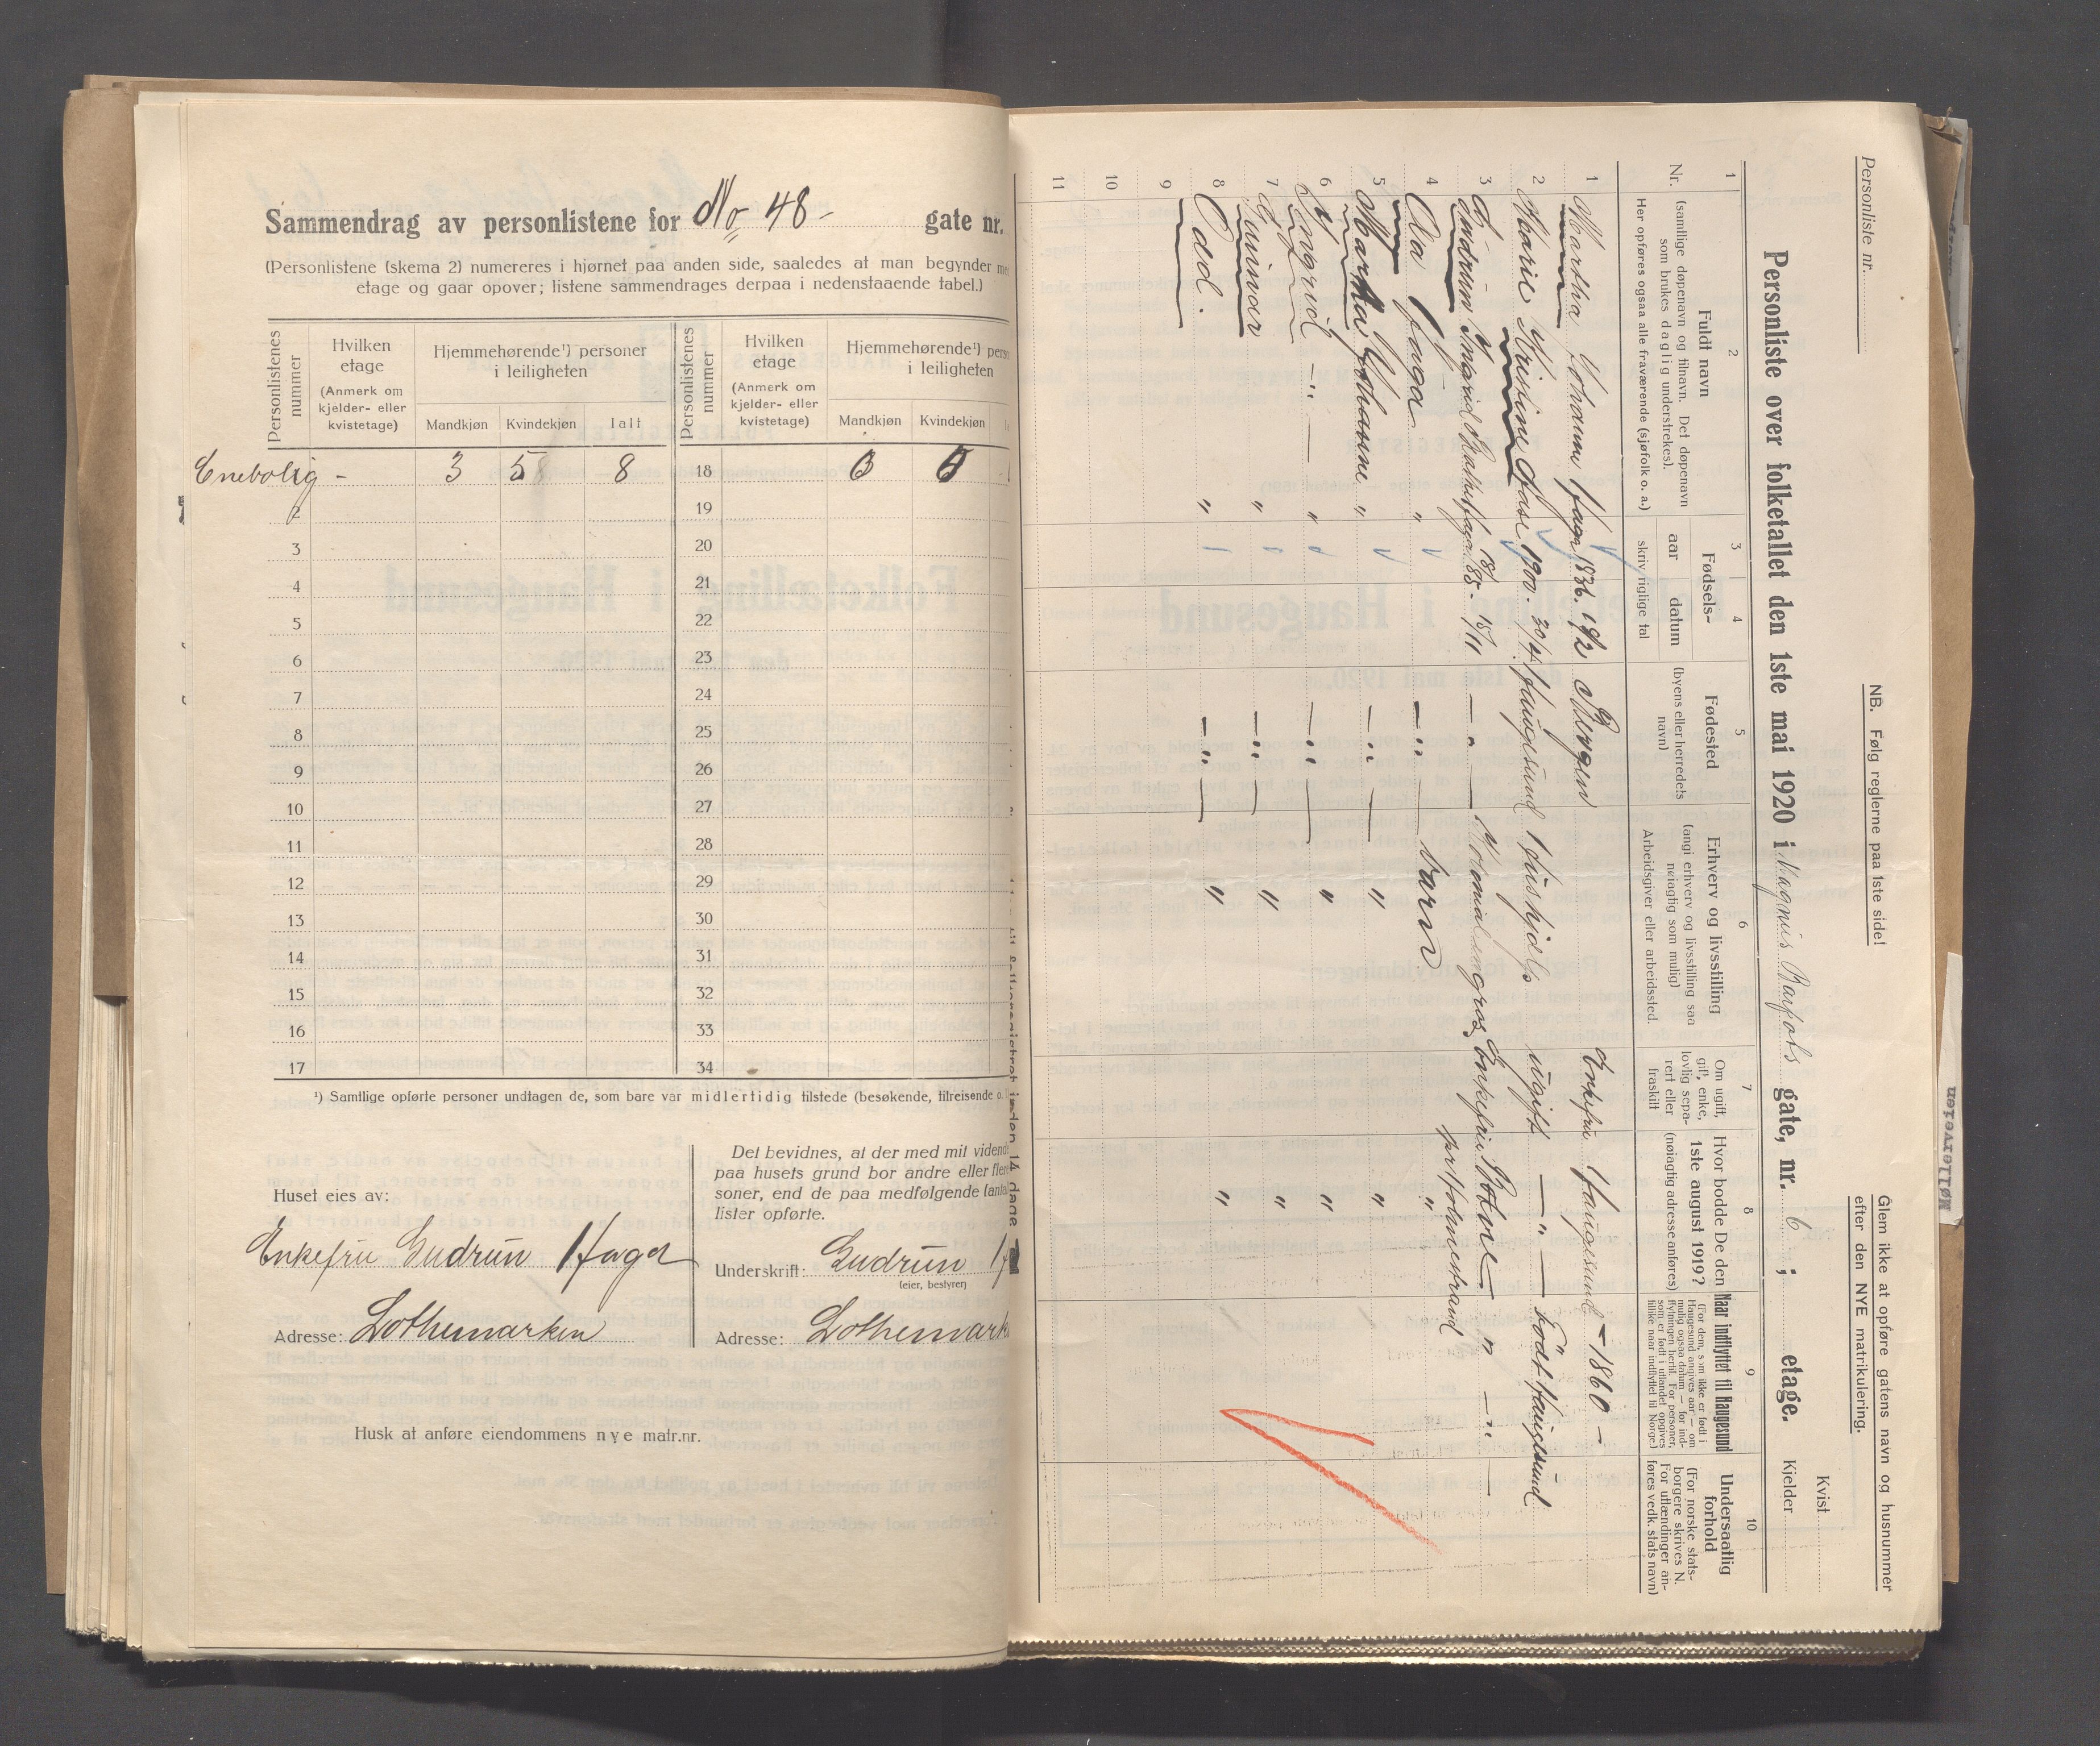 Sammendrag av personlistene for No 48 - gate nr.
(Personlistene (skema 2) numereres i hjørnet paa anden side, saaledes at man begynder
etage og gaar opover; listene sammendrages derpaa i nedenstaaende tabel.)
Personlistenes nummer
Hvilken etage
(Anmerk om kjelder- eller kvistetage)
Hjemmehørende¹) personer i leiligheten
Mandkjøn Kvindekjøn Ialt
Personlistenes nummer
Hvilken etage
(Anmerk om kjelder- eller kvistetage)
Hjemmehørende¹)
i leiligheten
Mandkjøn Kvindekjøn
Enebolig - 3 5 8 18
2 19
3 20
4 21
5 22
6 23
7 24
8 25
9 26
10 27
11 28
12 29
13 30
14 31
15 32
16 33
17 34
¹) Samtlige opførte personer undtagen de, som bare var midlertidig tilstede (besøkende, tilreisende o.
Huset eies av:
Enkefru Gudrun Haga
Adresse: Lothemarken
Det bevidnes, at der med mit
paa husets grund bor andre eller
soner, end de paa medfølgende
lister opførte.
Underskrift: Gudrun
(eier, bestyrer)
Adresse:
Husk at anføre eiendommens nye matr.nr.
Personliste nr.
NB. Følg reglerne paa 1ste side!
Glem ikke at opføre gatens navn og husnummer
efter den NYE matrikulering.
Kvist
Kjelder
Personliste over folketallet den 1ste mai 1920 i Magnus Barfots gate, nr. 6 ; etage.
1 2 3 4 5 6 7 8 9 10
Nr.
Fuldt navn
(samtlige døpenavn og tilnavn. Det døpenavn
som brukes daglig understrekes).
Her opføres ogsaa alle fraværende (sjøfolk o. a.)
Fødsels-
aar datum
skriv riglige tal
Fødested
(byens eller herredets navn)
Erhverv og livsstilling
(angi erhverv og livsstilling saa
nøiagtig som mulig)
Arbeidsgiver eller arbeidssted.
Om ugift,
gift, enke,
lovlig sepa-
rert eller
fraskilt
Hvor bodde De den
1ste august 1919?
(nøiagtig adresse anføres)
Naar indflyttet til Haugesund
(For dem, som ikke er født i
Haugesund angives aar — om
mulig ogsaa datum — for ind-
flytningen hertil. For personer,
som er født i utlandet opgives
tillike naar indflyttet til Norge.)
Undersaatlig
forhold
(For norske stats-
borgere skrives N.
For utlændinger an-
føres vedk. stats navn)
1 Martha Johanne Haga 1836. Bergen Enkefru Haugesund - 1860 -
2 Marie Kristine Aase 1900. 20/4 Haugesund Hushjelp ugift — " — Född Haugesund
3 Gudrun Ingrid Haga 85. 15/11 — " — Enkefru
4 Aa Haga " — " — barn " p.t. Holmestrand
5 Martha Johanne " — " — " "
6 Ingrid — " — " — " — " "
7 Gunnar " — " — " "
8 Odd. " — " — " "
9
10
11
Møllerveien